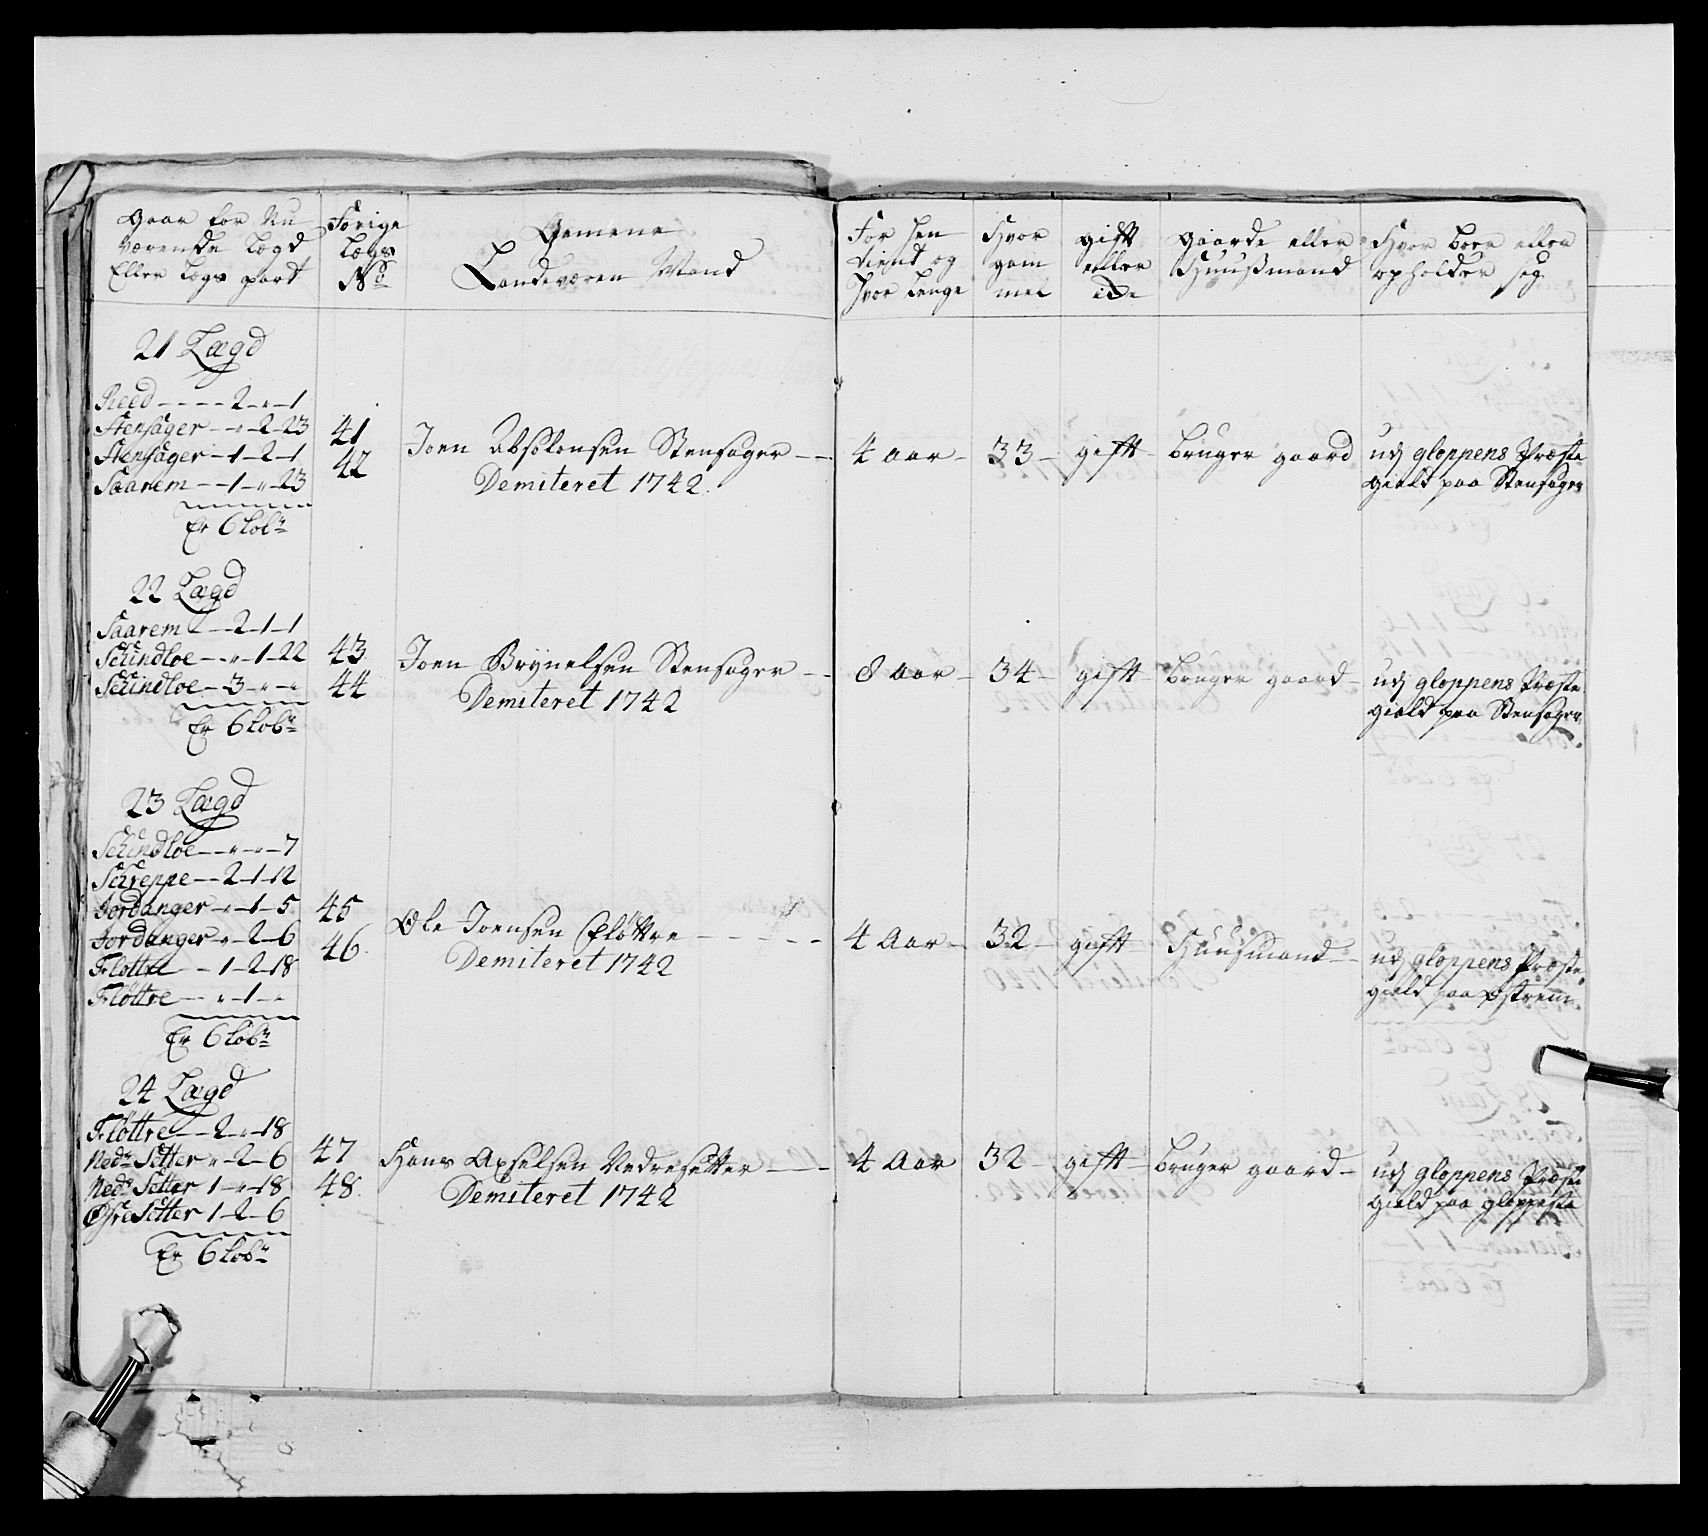 gaar for Nu
værende Lægd
Eller Legs part
Forige
Lægs
No
Gemene
Landeværen Mand
For hen
tient og
hvor lenge
Hvor
gam
mel
gift
eller
ide
gaarde eller
Huusmand
Hvor boer eller
opholder sig
21 Lægd
Reed - - - - 2 - " - 1
Stensager - " - 2 - 23
Stensager - 1 - 2 - 1
Saarem - - 1 - " - 23
Er 6 Løb
41
42
Joen Absolonsen Stensager - -
Demiteret 1742
4 aar -
33 -
gift -
bruger gaard
udj gloppens Præste
gield paa Stensager
22 Lægd
Saarem - - 2 - 1 - 1
Schindloe - " - 1 - 22
Schindloe - 3 - " - "
Er 6 Løb
43
44
Joen Brynelsen Stensager - -
Demiteret 1742
8 aar -
34 -
gift -
bruger gaard -
udj gloppens Præste
gield paa Stensager
23 Lægd
Schindloe - " - " - 7
Schreppe - - 2 - 1 - 12
Jordanger - " - 1 - 5
Jordanger - " - 2 - 6
Fløttre - 1 - 2 - 18
Fløttre - - " - 1 - "
Er 6 Løb
45
46
Ole Joensen Fløttre - - - - -
Demiteret 1742
4 Aar -
32 -
gift -
Huusmand -
udj gloppens Præste
gield paa Østrem
24 Lægd
Fløttre - - 2 - " - 18
Nedre Setter " - 2 - 6
Nedre Setter 1 - " - 18
Øfre Setter 1 - 2 - 6
Er 6 Løb
47
48
Hans Axselsen Nedresetter - - -
Demiteret 1742
4 Aar
32 -
gift -
bruger gaard -
udj gloppens Præste
gield paa